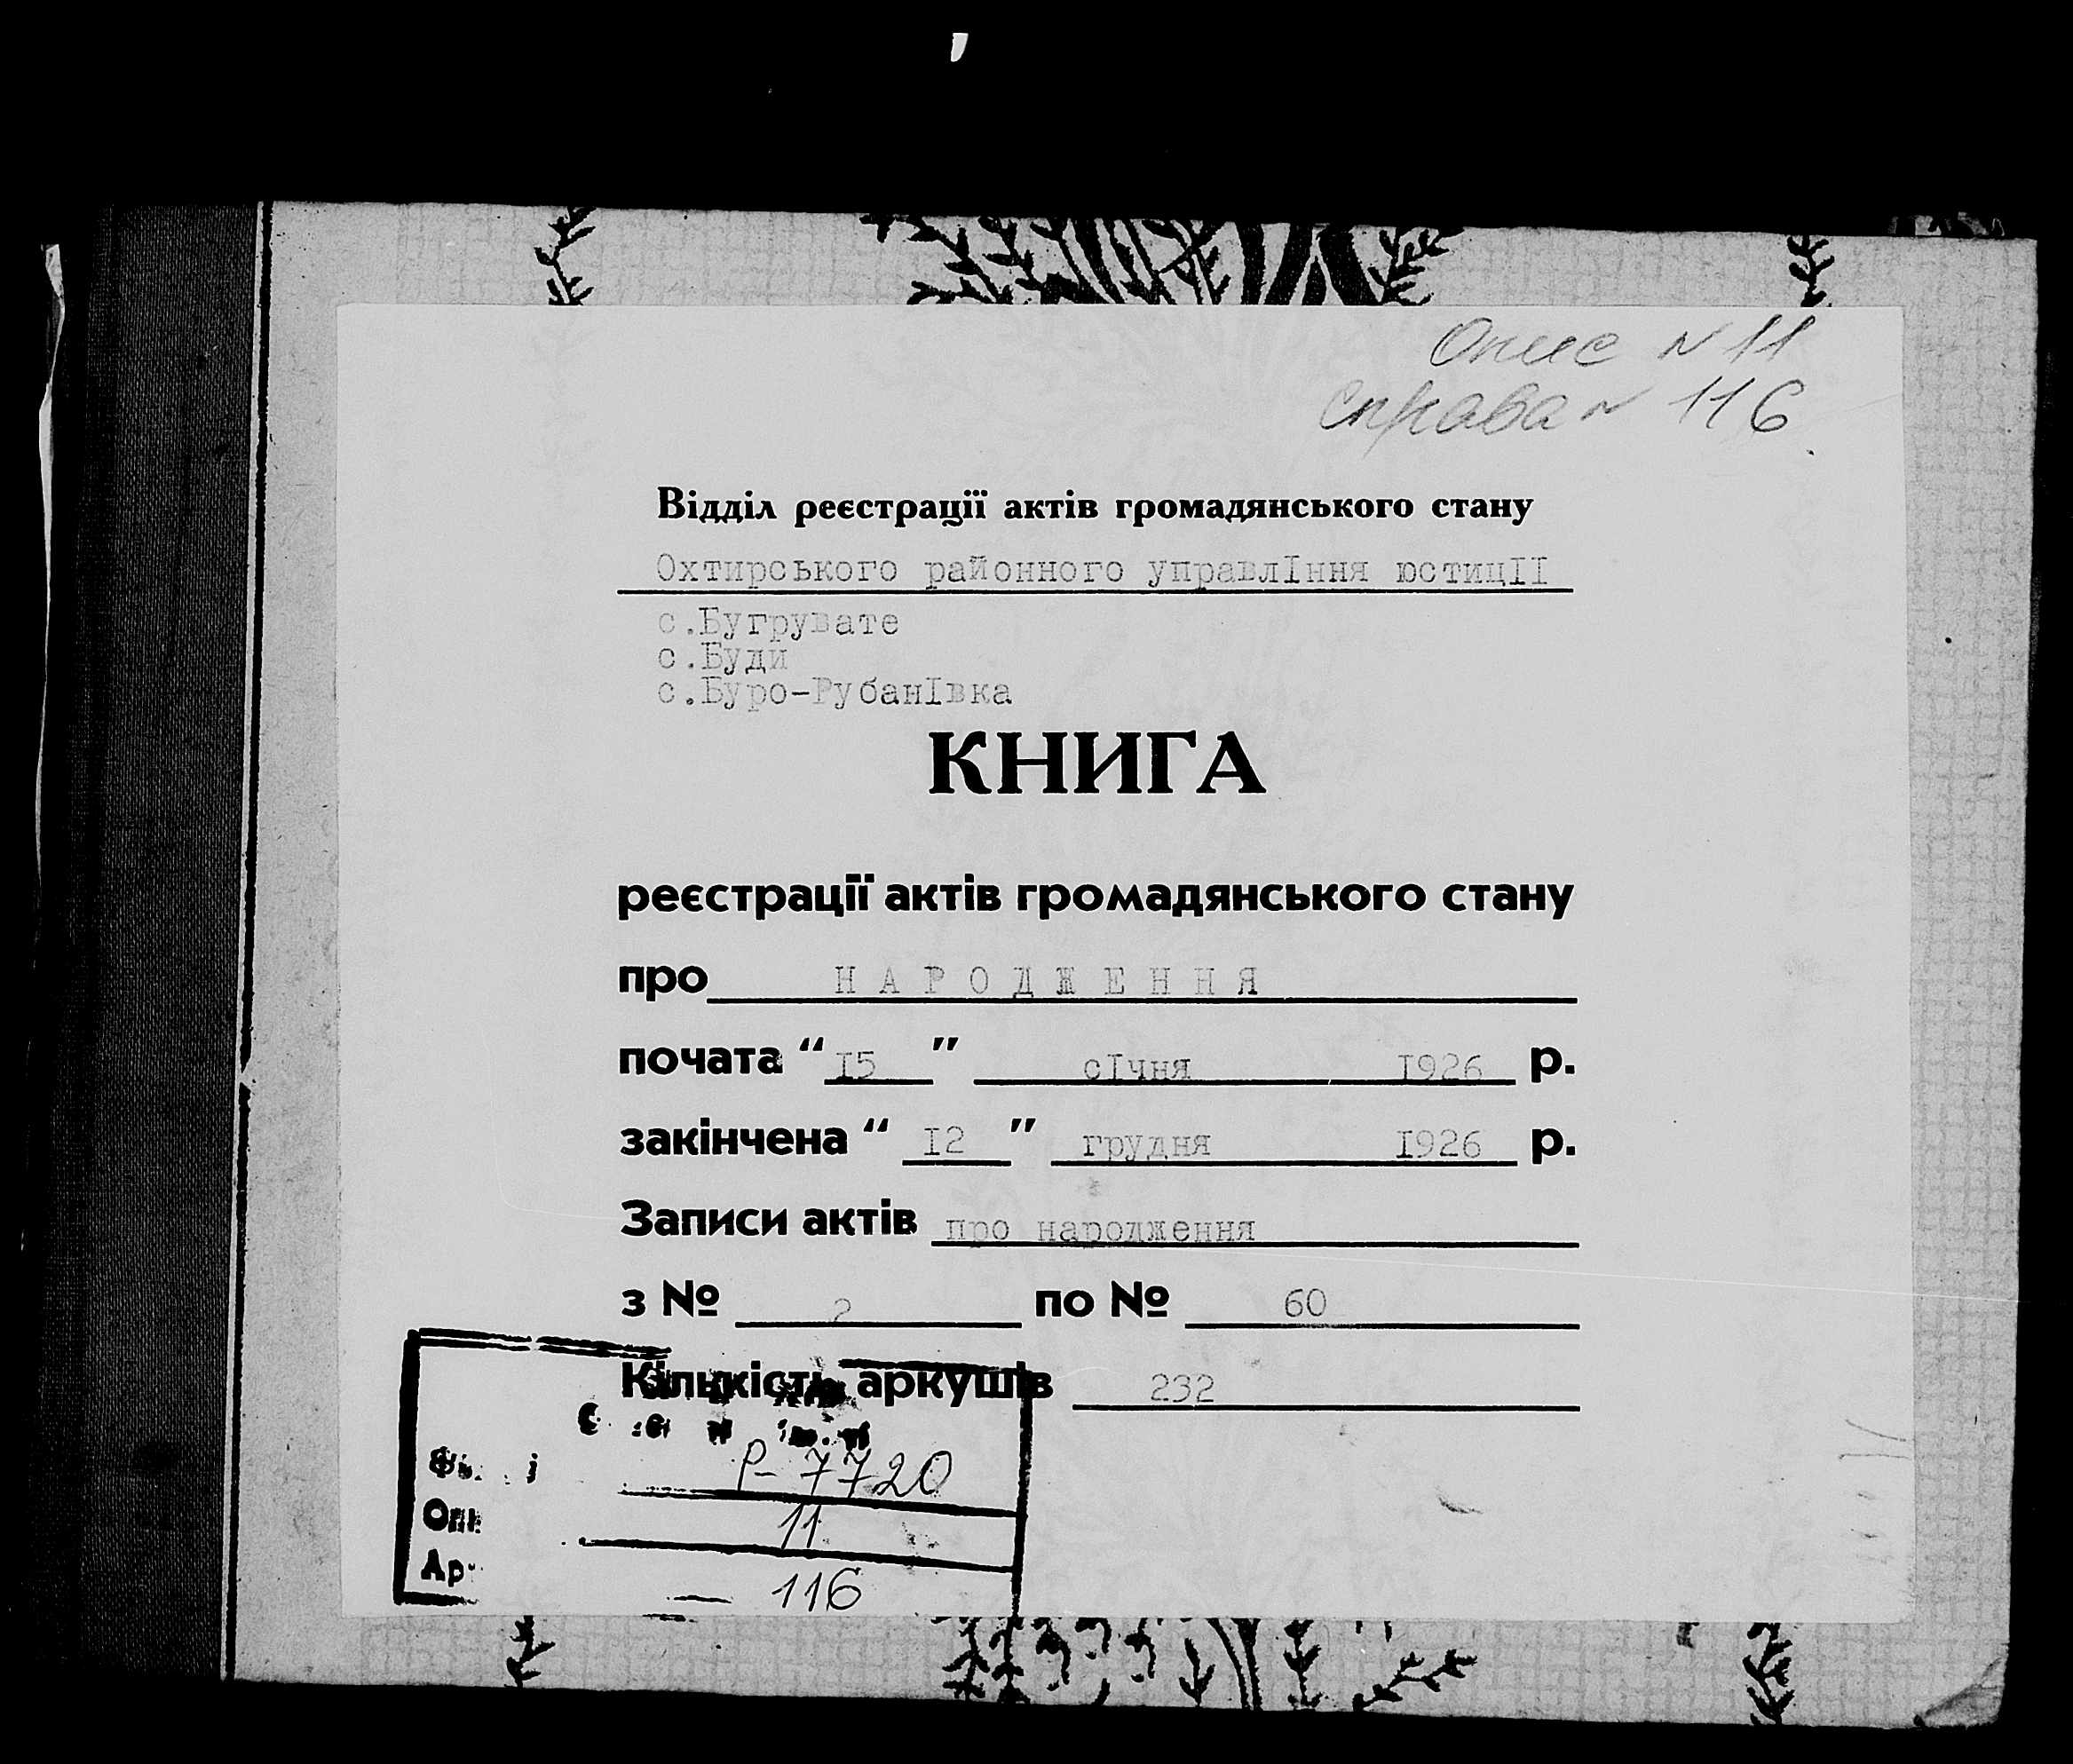 Опис N 11
Справа N 116
Відділ реєстрації актів громадянського стану
Охтирського районного управлІння юстицІІ
с.Бугрувате
с.Буди
с.Буро-РубанІвка
КНИГА
реєстрації актів громадянського стану
про НАРОДЖЕННЯ
почата “ І5 ” сІчня І926 р.
закінчена “ І2 ” грудня І926 р.
Записи актів про народження
з № 2 по № 60
Кількість аркушів 232
Р-7720
11
116